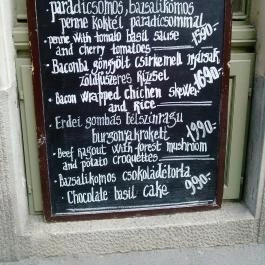 paradicsomos, bazsalikomos
penne koktél paradicsommal
• penne with tomato basil sauce
and cherry tomatoes 1590.-
• Baconba göngyölt csirkemell nyársak
zöldfűszeres rizsel 1690.-
• Bacon wrapped chicken skewer
and rice
• Erdei gombás bélszínragu
burgonyakrokett 1990.-
• Beef ragout with forest mushroom
and potato croquettes
• Bazsalikomos csokoládétorta
• Chocolate basil cake 990.-